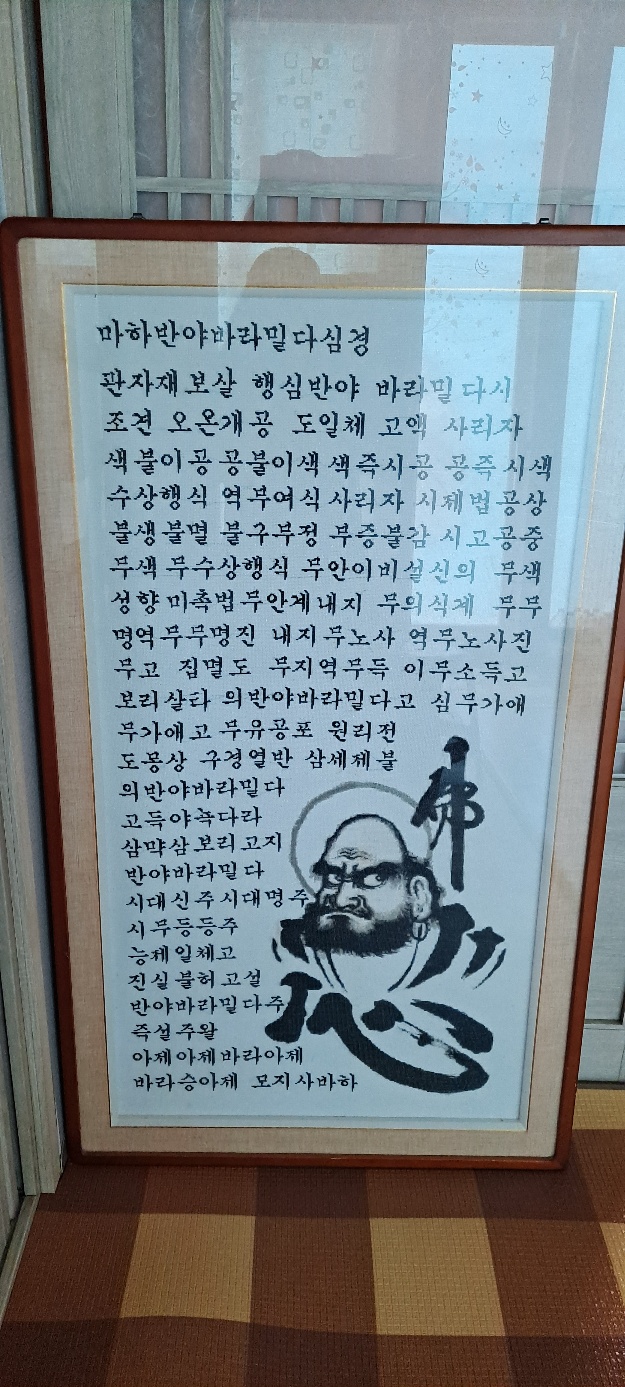 마하반야바라밀다심경
관자재보살 행심반야 바라밀다시
조견 오온개공 도일체 고액 사리자
색불이공공불이색색즉시공 공즉시색
수상행식 역부여식사리자 시제법공상
불생불멸 불구부정 부증불감 시고공중
무색 무수상행식 무안이비설신의 무색
성향미촉법무안계내지 무의식계 무무
명역무무명진 내지무노사 역무노사진
무고 집멸도 무지역무득 이무소득고
보리살타 의반야바라밀다고 심무가애
무가애고무유공포 원리전
도몽상 구경열반 삼세제불
의반야바라밀다
고득아녹다라
삼막삼보리고지
반야바라밀다
시대신주시대명주
시무등등주
능제일체고
진실불허고설
반야바라밀다주
즉설주왈
아제아제바라아제
바라승아제 모지사바하
佛
心